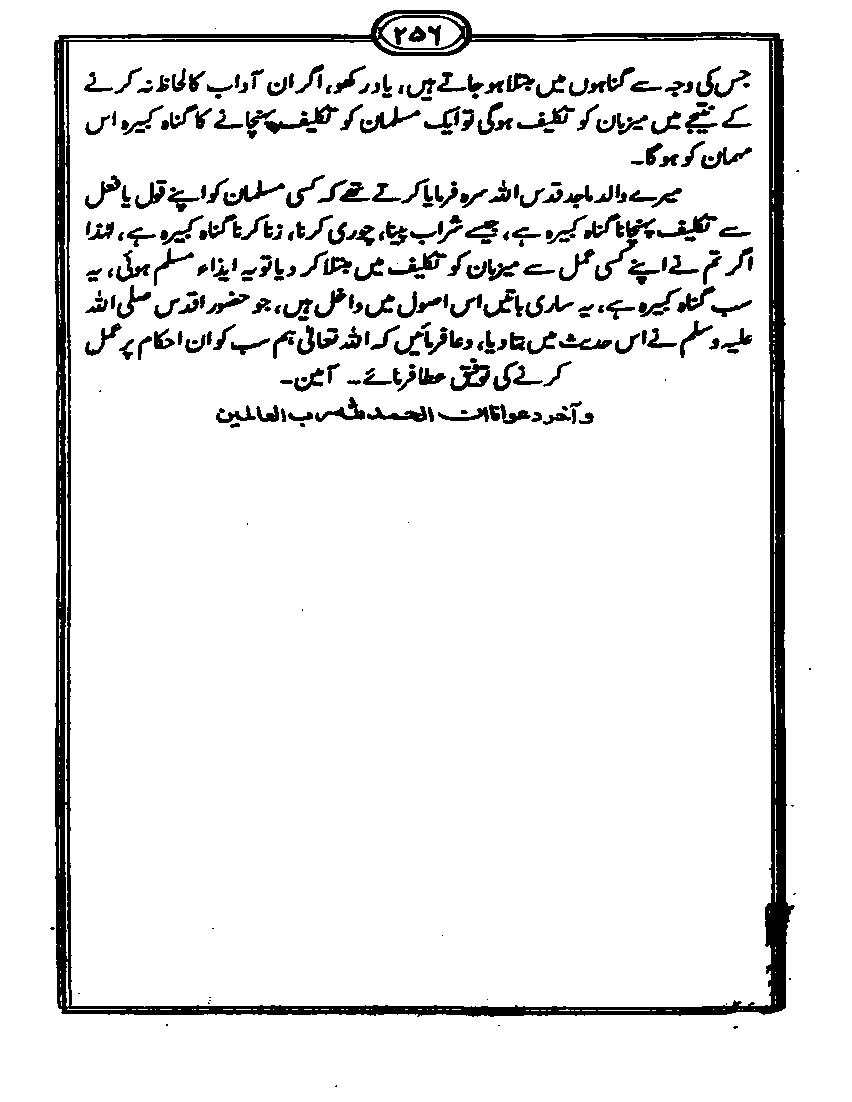 ۲۵۶
جس کی وجہ سے گناہوں میں مبتلا ہو جاتے ہیں، یاد رکھو، اگر ان آداب کا لحاظ نہ کرنے
کے نتیجے میں میزبان کو تکلیف ہوگی تو ایک مسلمان کو تکلیف پہنچانے کا گناہ کبیرہ اس
مہمان کو ہو گا۔
میرے والد ماجد قدس اللہ سرہ فرمایا کرتے تھے کہ کسی مسلمان کو اپنے قول یا فعل
سے تکلیف پہنچانا گناہ کبیرہ ہے، جیسے شراب پینا، چوری کرنا، زنا کرنا گناہ کبیرہ ہے، لہٰذا
اگر تم نے اپنے کسی عمل سے میزبان کو تکلیف میں مبتلا کر دیا تو یہ ایذاء مسلم ہوئی، یہ
سب گناہ کبیرہ ہے، یہ ساری باتیں اس اصول میں داخل ہیں، جو حضور اقدس صلی اللہ
علیہ وسلم نے اس حدیث میں بتا دیا، دعا فرمائیں کہ اللہ تعالیٰ ہم سب کو ان احکام پر عمل
کرنے کی توفیق عطا فرمائے۔ آمین۔
وآخر دعوانا ان الحمد للہ رب العالمین